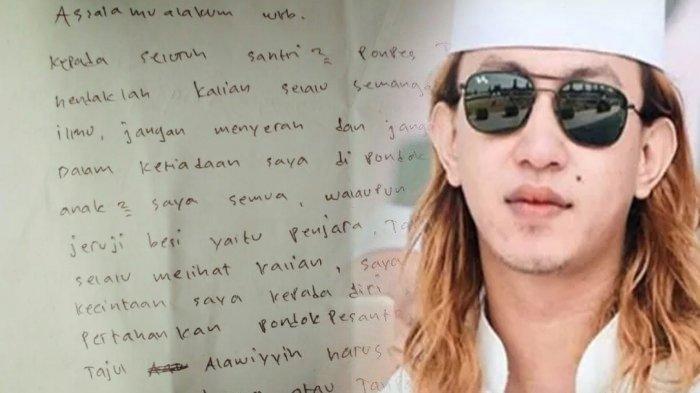 Assalamualaikum wrb.
Kepada seluruh santri 2 Ponpes T
hendaklah kalian selalu semanga
ilmu, jangan menyerah dan janga
Dalam ketiadaan saya di pondok
anak 2 saya semua, walaupun
jeruji besi yaitu penjara, Ta
selalu melihat kalian, saya
kecintaan saya kepada diri
Pertahankan pondok Pesantr
Tajul Alawiyyin harus
atau Tan